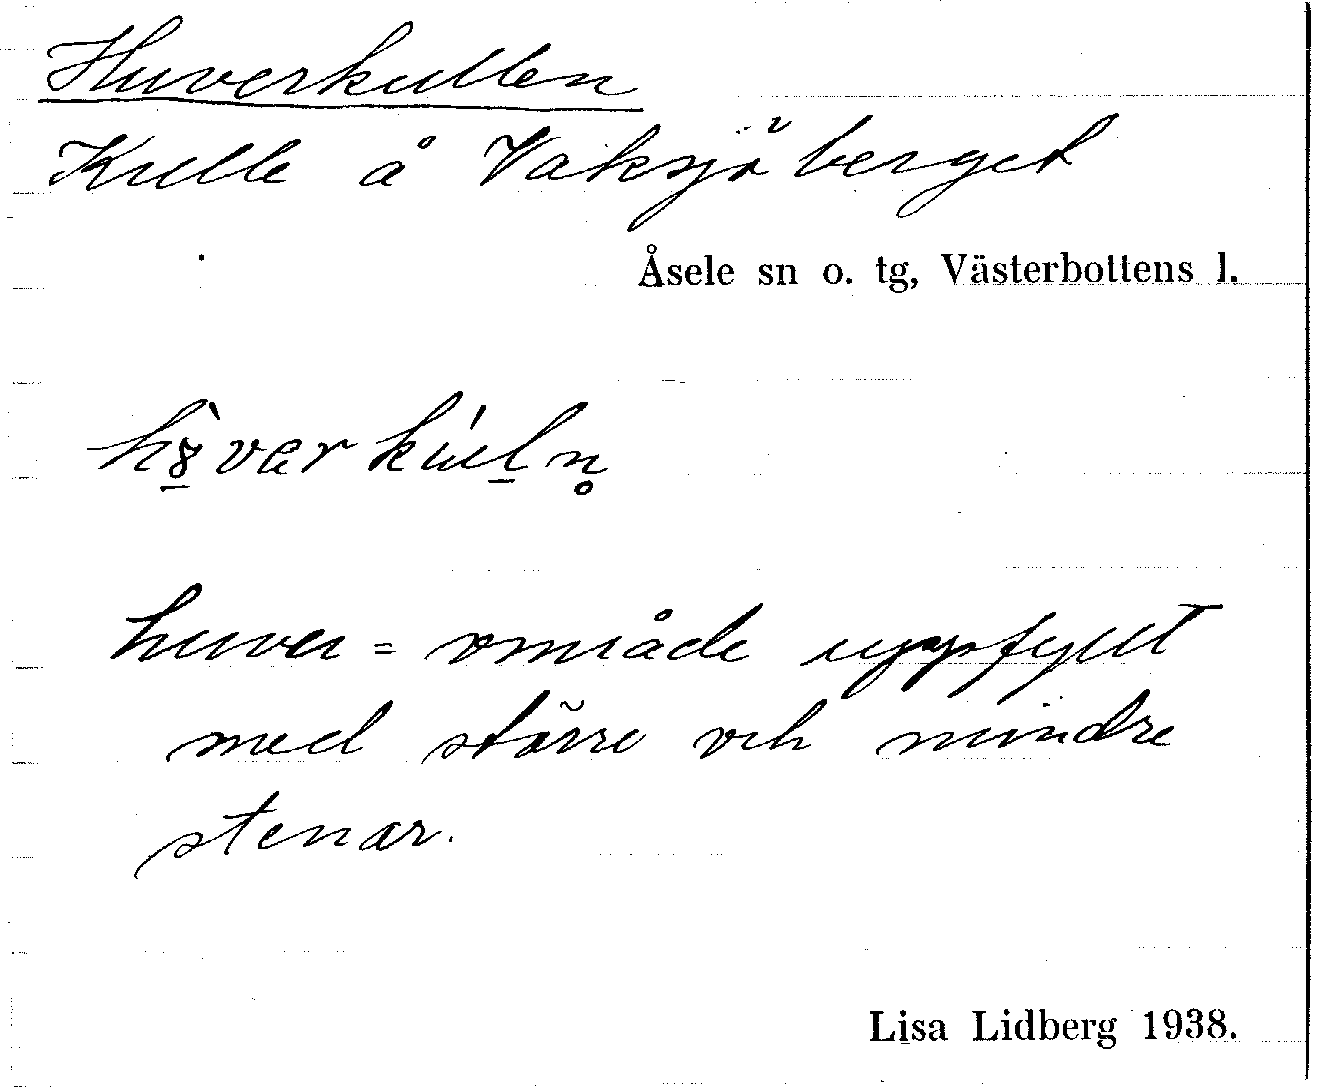 Huverkullen
Kulle å Vaksjöberget
Åsele sn o. tg, Västerbottens l.
hȣ̠̀varkúl̠n̥
huver = område uppfyllt
med större och mindre
stenar.
Lisa Lidberg 1938.